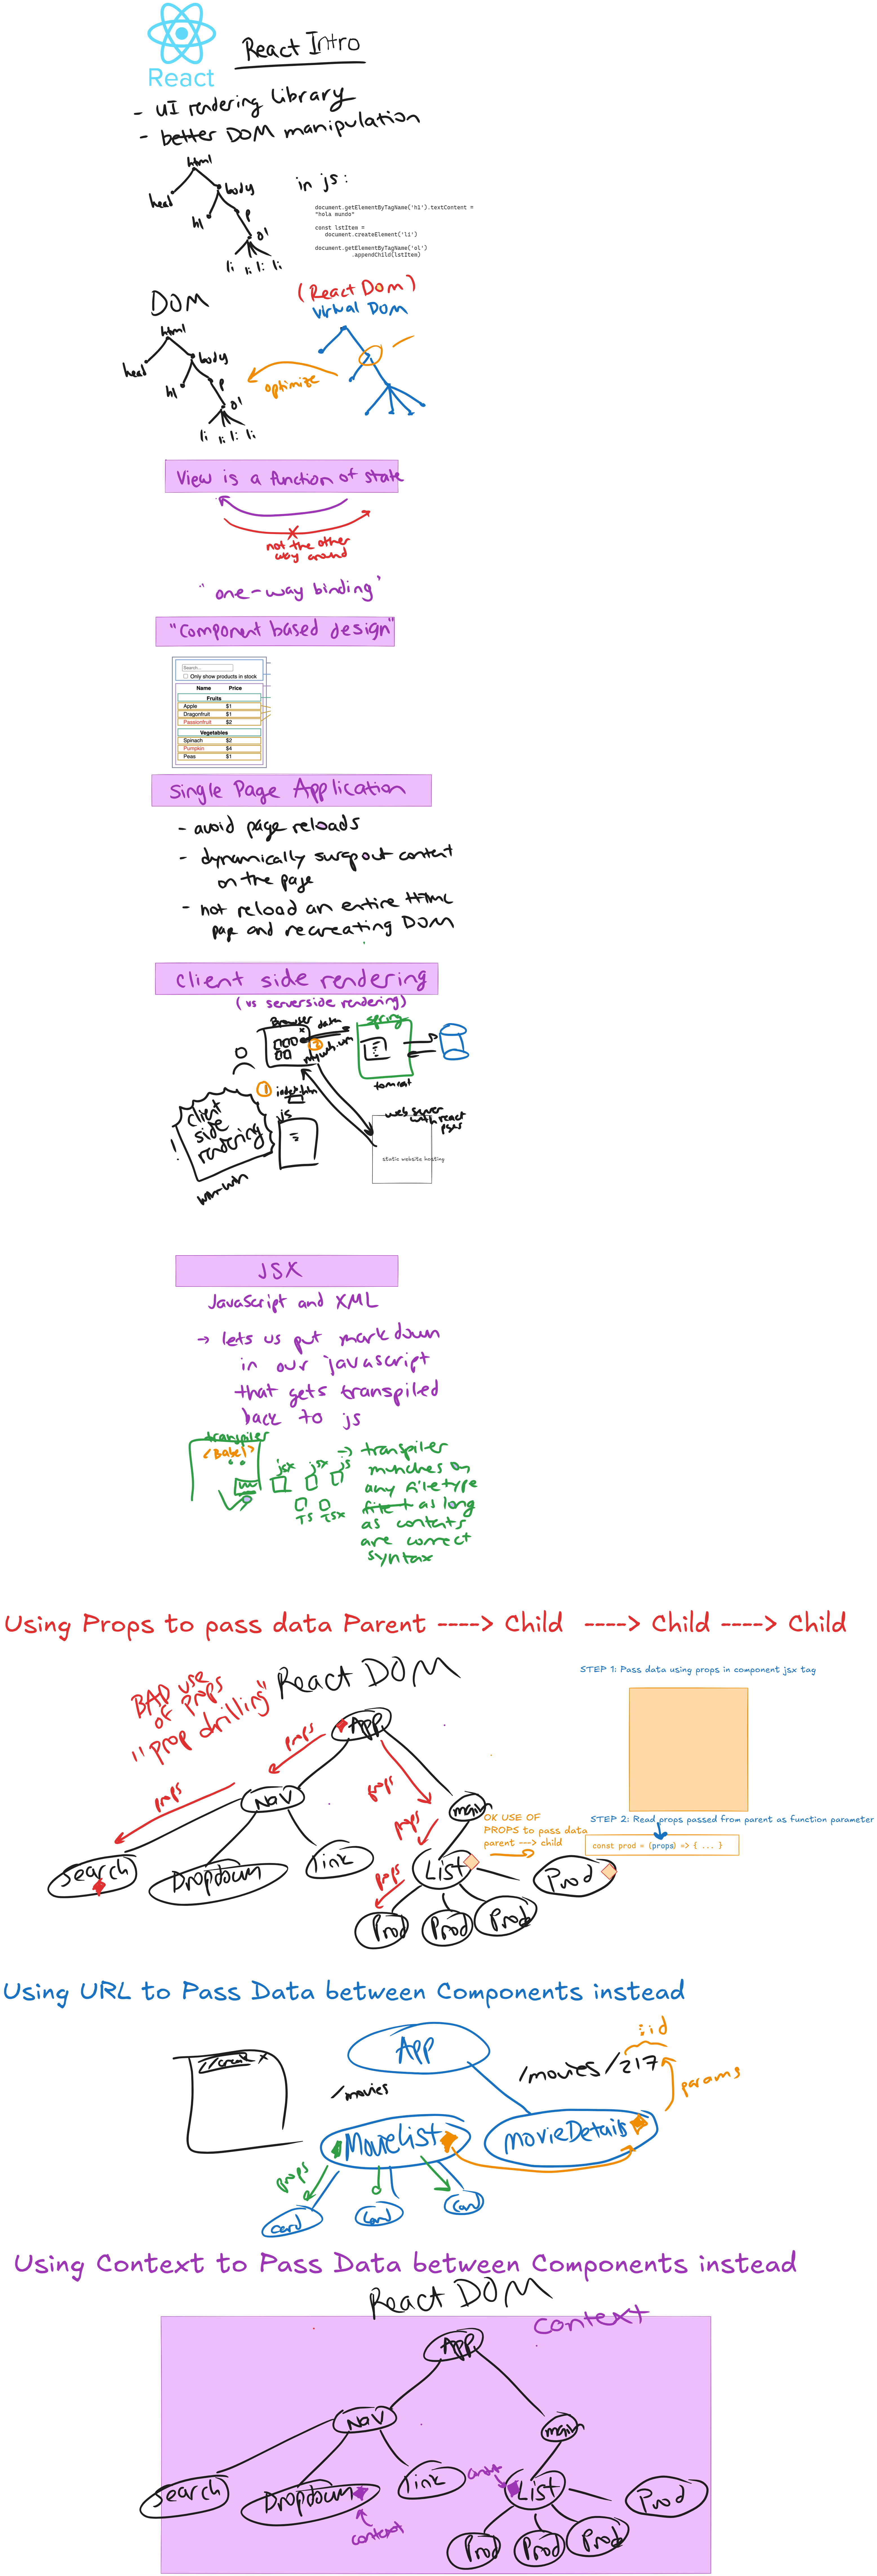 React
React Intro
- UI rendering library
- better DOM manipulation
html
head
body
h1
p
ol
li li li li
in js:
document.getElementByTagName('h1').textContent =
"hola mundo"
const lstItem =
document.createElement('li')
document.getElementByTagName('ol')
.appendChild(lstItem)
DOM
(React Dom)
virtual DOM
html
head
body
h1
p
ol
li li li li
optimize
View is a function of state
not the other
way around
"one-way binding"
"Component based design"
Search...
Only show products in stock
Name Price
Fruits
Apple $1
Dragonfruit $1
Passionfruit $2
Vegetables
Spinach $2
Pumpkin $4
Peas $1
Single Page Application
- avoid page reloads
- dynamically swapout content
on the page
- not reload an entire HTML
page and recreating DOM
client side rendering
(vs serverside rendering)
Browser
data
spring
tomcat
1
js
client
side
rendering
!
win-win
web server
with react
static website hosting
JSX
JavaScript and XML
→ lets us put markdown
in our javascript
that gets transpiled
back to js
transpiler
<Babel>
jsx jsx js
TS TSX
→ transpiler
munches on
any filetype
as long
as contents
are correct
syntax
Using Props to pass data Parent ----> Child ----> Child ----> Child
BAD use
of props
"prop drilling"
React DOM
App
props
props
props
props
props
Nav
main
Search
Dropdown
link
List
Prod
Prod
Prod
Prod
OK USE OF
PROPS to pass data
parent ---> child
STEP 1: Pass data using props in component jsx tag
STEP 2: Read props passed from parent as function parameter
const prod = (props) => { ... }
Using URL to Pass Data between Components instead
App
/movies
/movies/217
:id
params
MovieList
movieDetails
props
card
Card
Card
Using Context to Pass Data between Components instead
React DOM
Context
App
Nav
main
Search
Dropdown
link
context
List
Prod
Prod
Prod
Prod